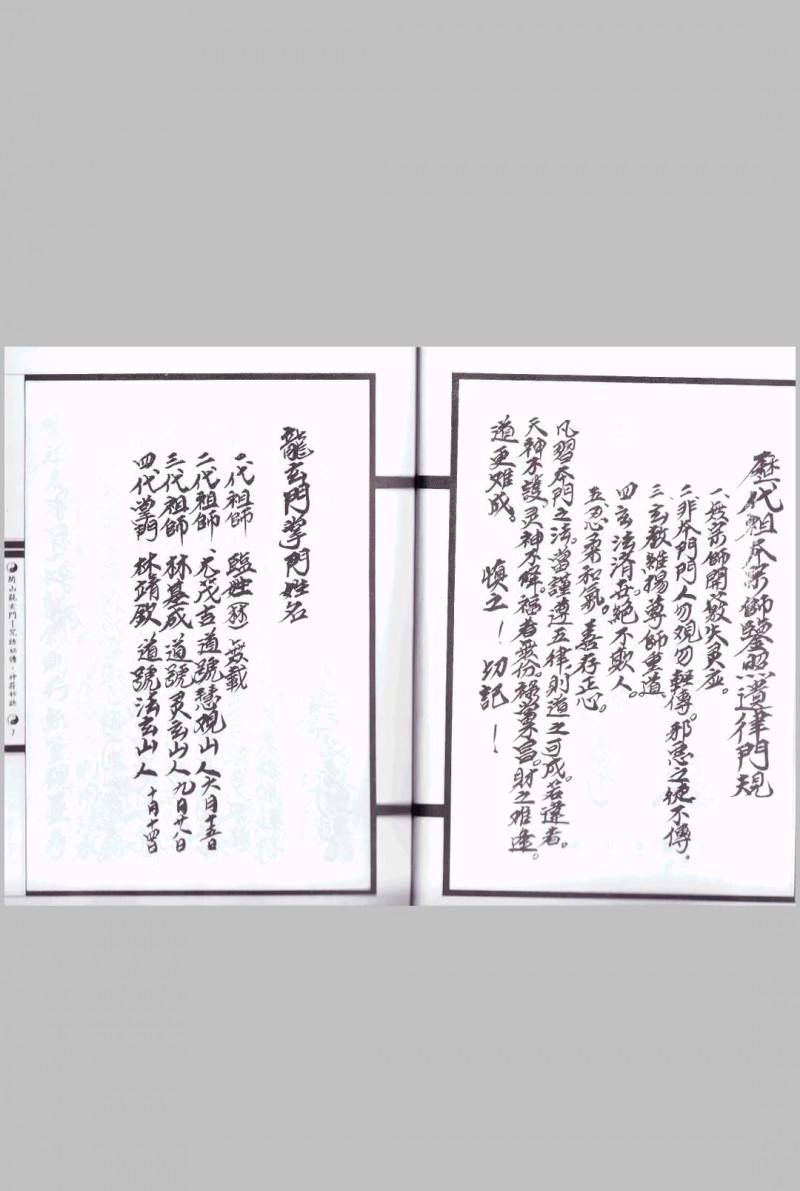 歷代祖本宗師鑒照遵律門規
一、無宗師開蔽失灵应。
二、非本門門人勿覌勿輕傳。邪恶之徒不傳。
三、玄教维揚尊師重道。
四、玄法济世絕不欺人。
五、忍柔和氣。善存正心。
凡習本門之法。當謹遵五律則道之可成。若違者。
天神不護灵神不降。福者無份。禄業不昌。財之难逢。
道更难成。 慎之！切記！
龍玄門掌門姓名
一代祖師 臨世 無載
二代祖師 尤茂吉 道號慧覌山人 六月十五日
三代祖師 林基成 道號灵玄山人 九月廿八日
四代掌門 林靖欽 道號法玄山人 十月十四日
閭山龍玄門－咒語秘傳．神符妙訣 7